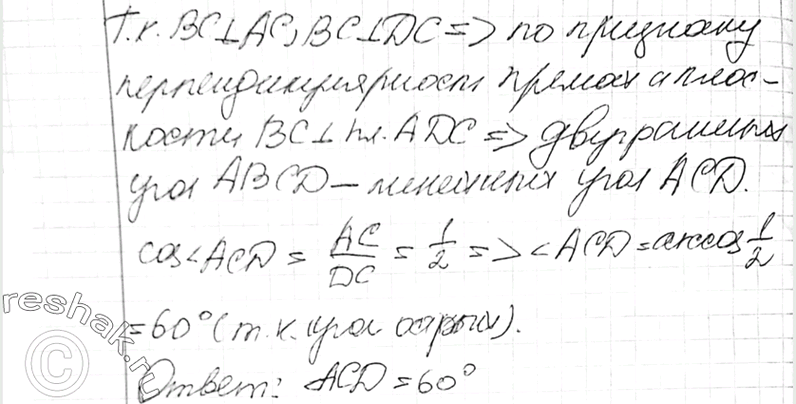 Т.к. BC⊥AC, BC⊥DC => по признаку
перпендикулярности прямой и плос-
кости BC⊥пл. ADC => двугранный
угол ABCD – линейный угол ACD.
cos∠ACD = AC/DC = 1/2 => ∠ACD = arccos 1/2
= 60° (т.к. угол острый).
Ответ: ∠ACD = 60°
reshak.ru
©